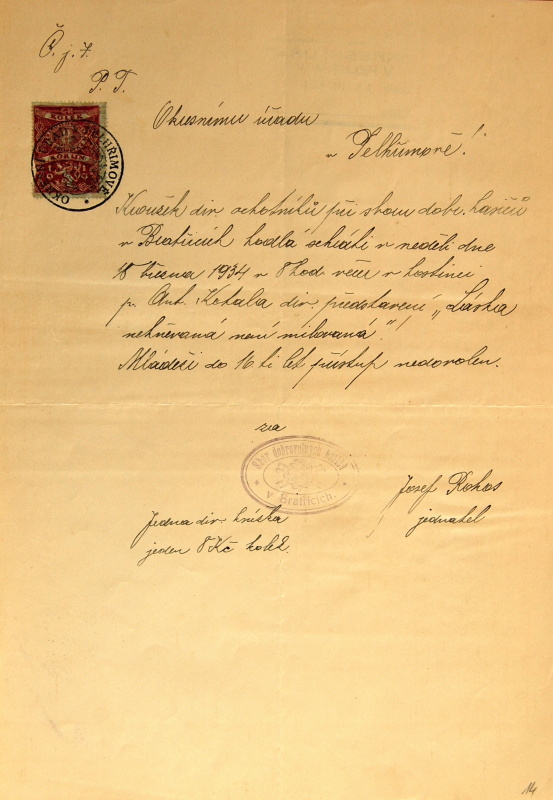 Č. j. 7.
P. T.
Okresnímu úřadu
v Pelhřimově!
Kroužek div. ochotníků při sboru dobr. hasičů
v Bratřicích hodlá sehráti v neděli dne
18 března 1934 v 8 hod večer v hostinci
p. Ant. Kotala div. představení „Láska
nehněvaná není milovaná"!
Mládeži do 16 ti let přístup nedovolen.
za
Sbor dobrovolných hasičů
v Bratřicích.
Josef Rokos
jednatel
Jedna div. hříčka
jeden 8 Kč kolek.
14